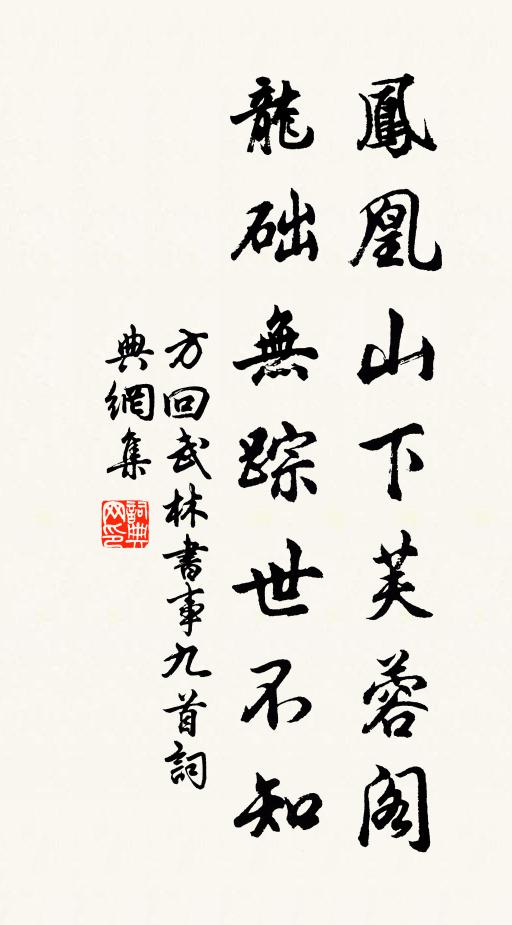 鳳凰山下芙蓉阁
龍础無踪世不知
方回武林書事九首詞
典網集
詞典网印